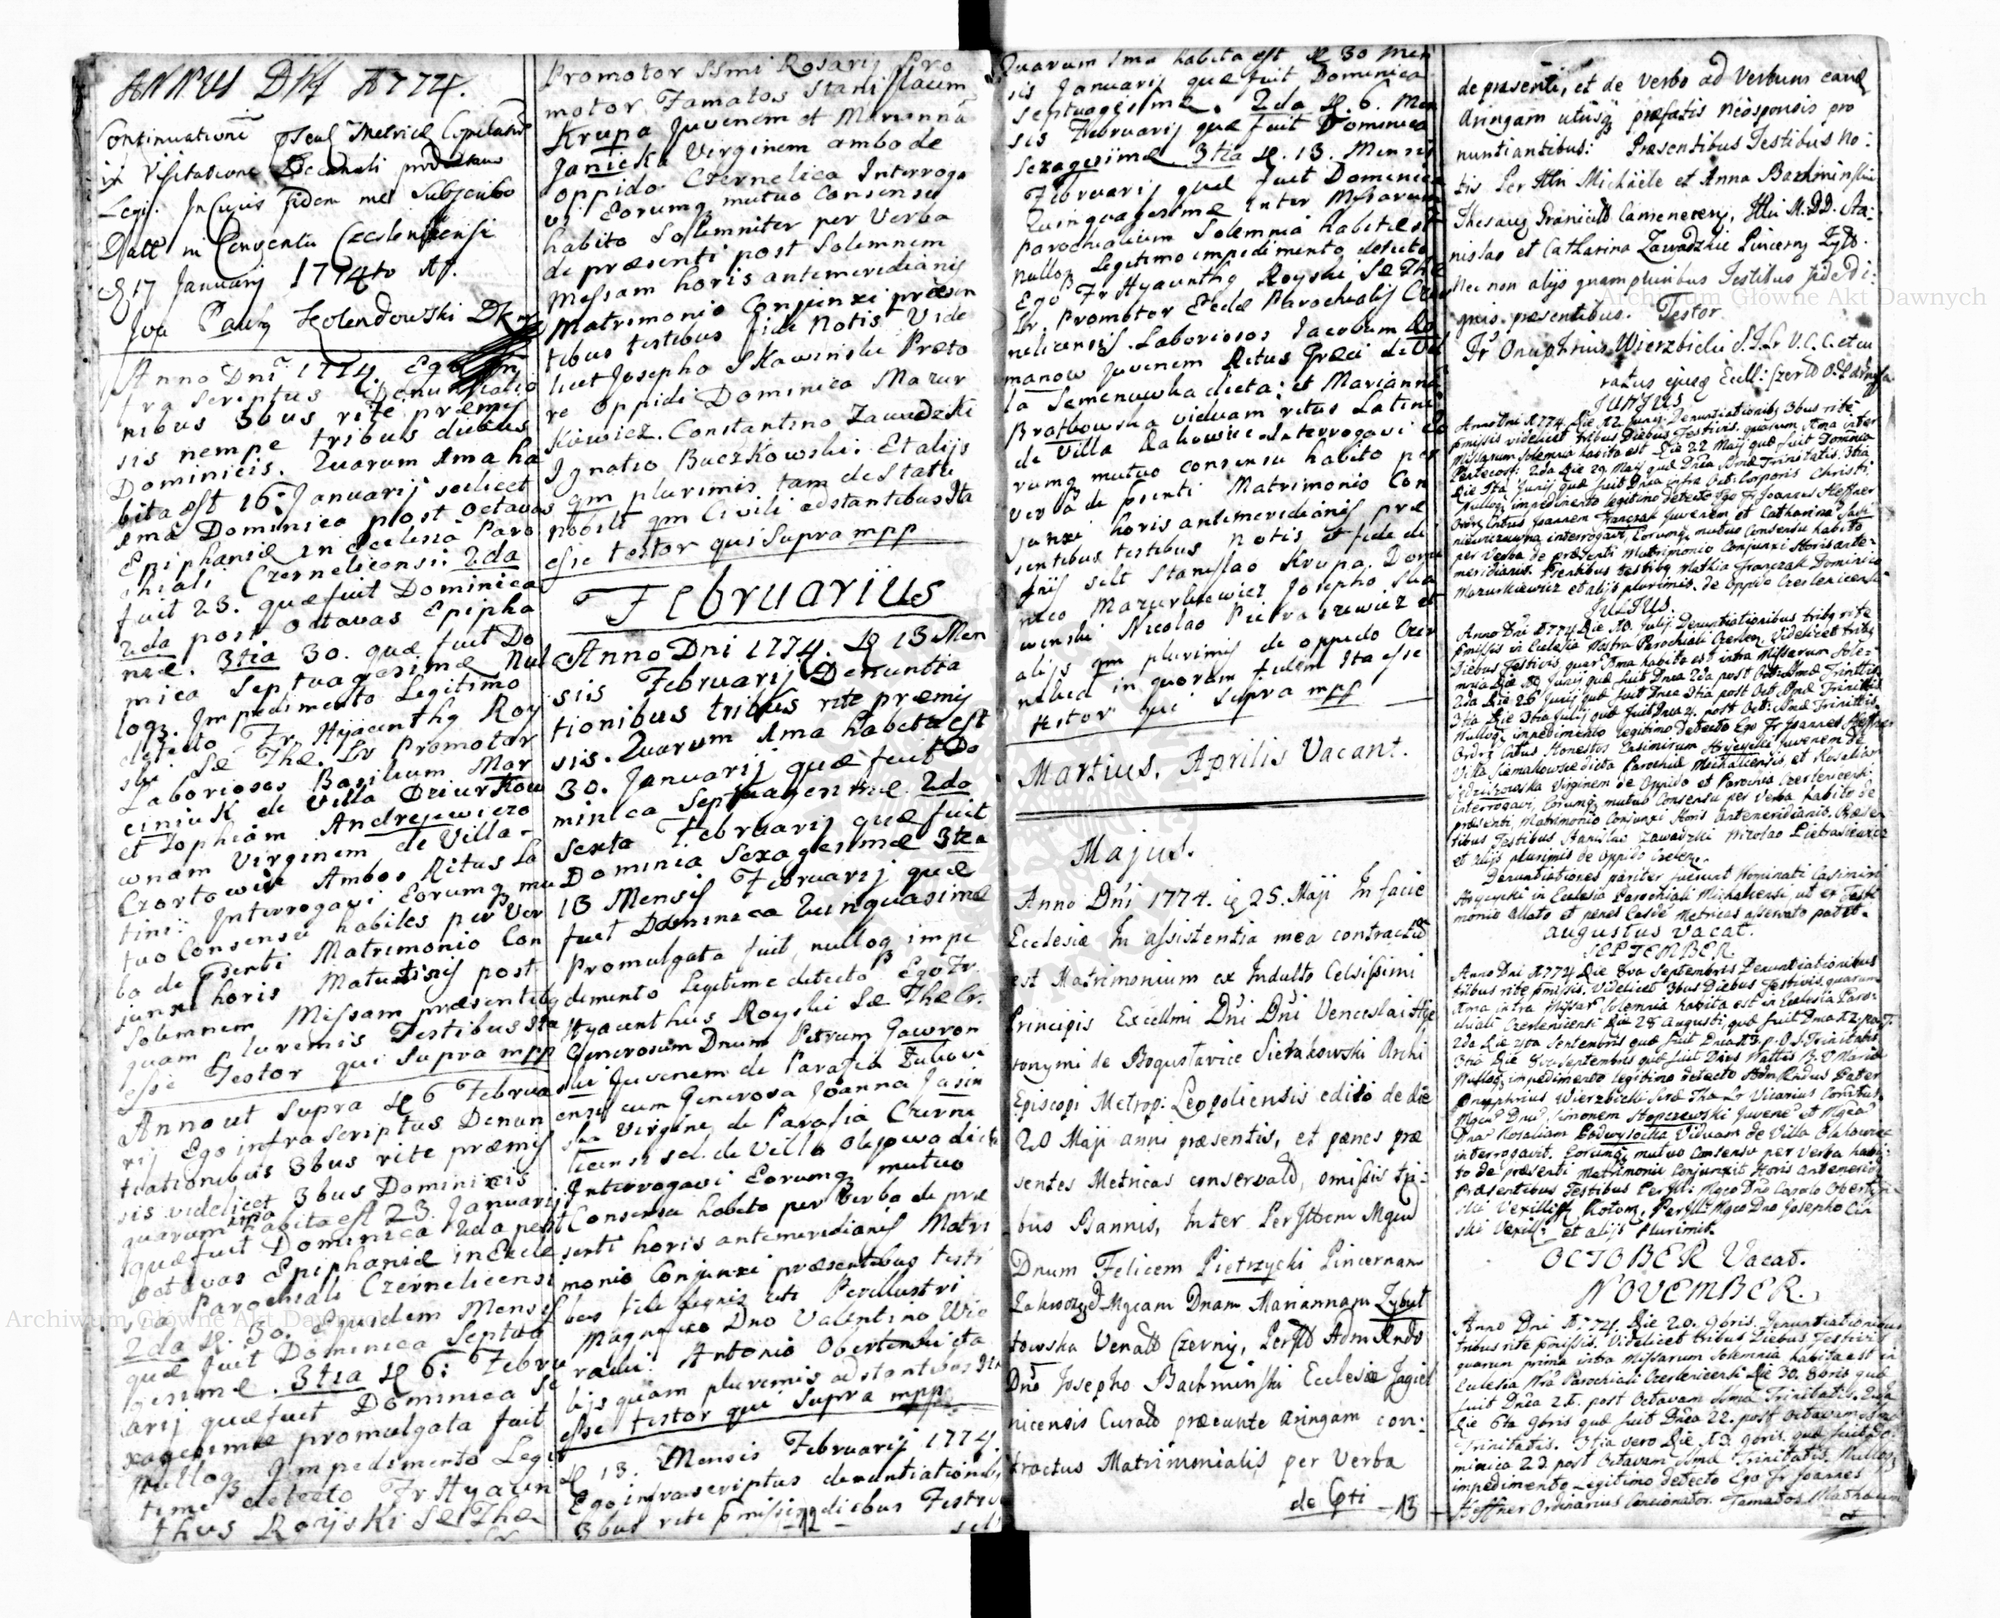 ANNUS DNI 1774.
Continuationem
in Visitatione Decanali
Legi. In Cujus fidem me Subscribo
Datt in Conventu
17 Januarij 1774to
Kolendowski
Anno Dni 1774. Ego in
fra scriptus Denuntiatio
nibus 3bus rite præmis
sis nempe tribus diebus
Dominicis. Quarum 1ma ha
bita est 16: Januarij scilicet
1ma Dominica post octavas
Epiphaniæ in Ecclesia Paro
chiali Czernelicensi: 2da
fuit 23. quæ fuit Dominica
2da post Octavas Epipha
niæ. 3tia 30. quæ fuit Do
minica Septuagesimæ Nul
loq Impedimento Legitimo
detecto Fr Hyacinthq Roy
ski Sæ Thæ. Lr Promotor
Laboriosos Basilium Mar
ciniuk de Villa Dziurkow
et Sophiam Andrejewiczo
wnam Virginem de Villa
Czortowiec Ambos Ritus La
tini: Interrogavi Eorumq mu
tuo Consensu habiles per Ver
ba de Psenti Matrimonio Con
junxi horis Matutinis post
Solemnem Missam præsentibq
quam pluremis Testibus Ita
esse Testor qui Supra mpp
Anno ut Supra 6 Februa
rij Ego infra scriptus Denun
tiationibus 3bus rite præmis
sis videlicet 3bus Dominicis
quarum 1ma habita est 23. Januarij
quæ fuit Dominica 2da post
octavas Epiphaniæ in Eccle
sia Parochiali Czernelicensi
2da 30. Ejusdem Mensis
quæ fuit Dominica Septua
gesimæ. 3tia 6: Febru
arij quæ fuit Dominica Se
xagesimæ promulgata fuit
Nulloq Impedimento Legit
time detecto Fr Hyacin
thus Royski Sæ Thæ
Lr
Promotor SSmi Rosarij Pro
motor Famatos Stanislaum
Krupa Juvenem et Mariannã
Janicka Virginem ambo de
oppido Czernelica Interroga
vi Eorumq mutuo Consensu
habito Solemniter per Verba
de præsenti post Solemnem
Messam horis antemeridianis
Matrimonio Conjunxi præsen
tibus testibus fide Notis. Vide
licet Josepho Skawinski Præto
re oppidi Dominico Mazur
kiewicz. Constantino Zawadzki
Ignatio Buczkowski: Et alijs
qm plurimis tam de Statu
nobili qm Civili adstantibus Ita
esse testor qui Supra mpp
Februarius
Anno Dni 1774. 13 Men
sis Februarij Denuntia
tionibus tribus rite præmis
sis. Quarum 1ma habita est
30. Januarij quæ fuit Do
minica Septuagesimæ. 2da
Sexta Februarij quæ fuit
Dominia Sexagesimæ 3tia
13 Mensis Februarij quæ
fuit Dominica Quinquasimæ
Promulgata fuit, nulloq impe
dimento Legitime detecto Ego Fr.
Hyacinthus Royski Sæ Thæ Lr.
Generosum Dnum Petrum Gawron
ski Juvenem de Parafia
cum Generosa Joanna Jasin
ska Virgine de Parafia Czerne
licensi scl. de Villa Olejowa
Interrogavi Eorumq mutuo
Consensu habito per Verba de præ
senti horis antemeridianis Matri
monio Conjunxi præsentibus testi
bus fide dignis uti Perillustri
Magnifico Dno Valentino
Antonio Obertenski
quam pluremis adstantibus Ita
esse testor qui Supra mpp
13. Mensis Februarij 1774.
Ego infrascriptus denuntiationibq
3bus rite pmissis diebus Festivis
12
Quarum 1ma habita est 30 Men
sis Januarij quæ fuit Dominica
Septuagesimæ. 2da 6. Men
sis Februarij quæ fuit Dominica
Sexagesimæ 3tia 13. Mensis
Februarij quæ fuit Dominica
Quinquagesimæ Inter Missarum
Parochialium Solemnia habita est
nulloq Legitimo impedimento detecto
Ego Fr Hyacinthq Royski Sæ Thæ
Lr. Promotor Ecclæ Parochialis Czer
nelicensis. Laboriosos Jacobum
manow Juvenem Ritus Græci de
la Semenuwka dicta: et Mariannã
Bratkowska viduam ritus Latini
de Villa Rakowiec Interrogavi Eo
rumq mutuo consensu habito per
verba de psenti Matrimonio Con
junxi horis antemeridianis præ
sentibus testibus notis et fide di
gnis scilt Stanislao Krupa. Domi
nico Mazurkiewicz Josepho Ska
winski Nicolao Pietraszewicz et
alijs qm plurimis de oppido Czer
nelica in quorum fidem Ita esse
testor qui Supra mpp
Martius, Aprilis Vacant.
Majus.
Anno Dni 1774. 25. Maji In facie
Ecclesiæ In assistentia mea contractũ
est Matrimonium ex Indulto Celsissimi
Principis Excellmi Dni Dni Venceslai Hye
ronymi de Bogustawice Sierakowski Archi
Episcopi Metrop: Leopoliensis edito de die
20 Maji anni præsentis, et pænes præ
sentes Metricas conservatõ, omissis tri
bus Bannis, Inter PerIllrem Mgcum
Dnum Felicem Pietrzycki Pincernam
Mgcam Dnam Mariannam Zybul
towska Venatõ Czerny, Perilló Admrndo
Dno Josepho Bachminski Ecclesiæ Jagiel
nicensis Curatõ præeunte aringam con:
tractus Matrimonialis per Verba
de Psti 13
de præsenti, et de verbo ad verbum eand
Aringam utrisq præfatis neosponsis pro
nuntiantibus: Præsentibus Testibus No:
tis Per Illri Michaele et Anna Bachminskie
Thesaur Graniculo Camenecens, Illri M. DD. Sta:
nislao et Catharina Zawadzkie Pincerny Zyto.
Nec non alijs quampluribus Testibus fide Di:
gnis præsentibus. Testor
Fr Onuphrius Wierzbicki S. T. Lr V. C. C. et cu
ratus ejusq Eccll:
JUNIUS
Anno Dni 1774. Die 12 Junij Denuntiationibq 3bus ritè
pmissis videlicet tribus Diebus Festivis, quorum 1ma inter
Missarum Solemnia habita est Die 22 Maij quæ fuit Domnica
Pentecost: 2da Die 29 Maij quæ Dnica SSmæ Trinitatis. 3tia
Die 5ta Junij quæ fuit Dnica infra Oct: Corporis Christi
Nulloq impedimento legitimo detecto Ego Fr Joannes Heffner
Ordri Cntus Joannem Franczak Juvenem et Catharina
interrogavi, Eorumq mutuo Consensu habito
per Verba de præsenti Matrimonio Conjunxi Horis ante-
meridianis. Psentibus testibq Mathia Franczak Dominico
Mazurkiewicz et alijs plurimis. de Oppido Czerlenicensi
JULIUS.
Anno Dni 1774 Die 10. Julij Denuntiationibus tribq rite
pmissis in Ecclesia Nostra Parochiali Czerlen. Videlicet tribq
Diebus Festivis, quar 1ma habita est intra Missarum Sole-
mnia Die 19 Junij quæ fuit Dnica 2da post Oct: SSmæ Trinitatis
2da Die 26 Junij quæ fuit Dnica 3tia post Oct: SSmæ Trinitatis
3tia Die 3tia Julij quæ fuit Dnica 4. post Oct: SSmæ Trinitatis.
Nulloq impedimento legitimo detecto Ego Fr Joannes Heffner
Ordri Cntus Honestos Casimirum Hojecycki Juvenem de
Villa Siemakowce dicta Parochiæ Michalcensis, et Rosaliam
Virginem de Oppido et Parochia Czerlenicensi
interrogavi, Eorumq mutuo Consensu per Verba habito de
præsenti Matrimonio Conjunxi Horis Antemeridianis. Præsen-
tibus Testibus Stanislao Zawadzki Nicolao Pietrasiewicz
et alijs plurimis de Oppido Czerlen.
Denuntiationes pariter fuerunt Nominati Casimiri
Hojecycki in Ecclesia Parochiali Michalcensi, ut ex Testi
monio allato et penes Easdē Metricas asservato patet.
Augustus Vacat.
SEPTEMBER
Anno Dni 1774 Die 8va Septembris Denuntiationibus
tribus rite pmissis. Videlicet 3bus Diebus Festivis, quarum
1ma intra Missar Solemnia habita est in Ecclesia Paro-
chiali Czerlenicensi Die 28 Augusti, quæ fuit Dnica 12 post
2da Die 4ta Septembris quæ fuit Dnica 13. p. O. S. Trinitatis
3tia Die 8va Septembris quæ fuit Dies Nattis B. V. Mariæ
Nulloq impedimento legitimo detecto AdmRndus Pater
Onuphrius Wierzbicki Sræ Thæ Lr Vicarius Contbus
Mgcũ Dnũ Simonem Stopczewski Juvenē et Mgcã
Dnã Rosaliam Podwysocka Viduam de Villa
interrogavit. Eorumq mutuo Consensu per Verba habi-
to de præsenti Matrimoniũ Conjunxit Horis Antemerid
Præsentibus Testibus PerIll: Mgco Dno Carolo Obertyń-
ski Vexilliff Rotom, PerIll: Mgco Dno Josepho
ski Vexill: et alijs Plurimis.
OCTOBER Vacat.
NOVEMBER.
Anno Dni 1774. Die 20. 9bris. Denuntiationibus
tribus rite pmissis. Videlicet tribus Diebus Festivis
quarum prima intra Missarum Solemnia habita est in
Ecclesia Nrã Parochiali Czerlenicensi Die 30. 8bris quæ
fuit Dnica 21. post Octavam SSmæ Trinitatis. 2da
Die 6ta 9bris quæ fuit Dnica 22. post Octavam SSmæ
Trinitatis. 3tia vero Die 13. 9bris. quæ fuit Do-
minica 23 post Octavam SSmæ Trinitatis. Nulloq
impedimento Legitimo detecto Ego Fr Joannes
Heffner Ordinarius Concionator. Famatos Mathæum
Archiwum Główne Akt Dawnych
Archiwum Główne Akt Dawnych